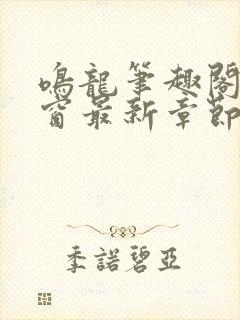 鳴龍筆趣閣
窗最新章節
季諾碧亞